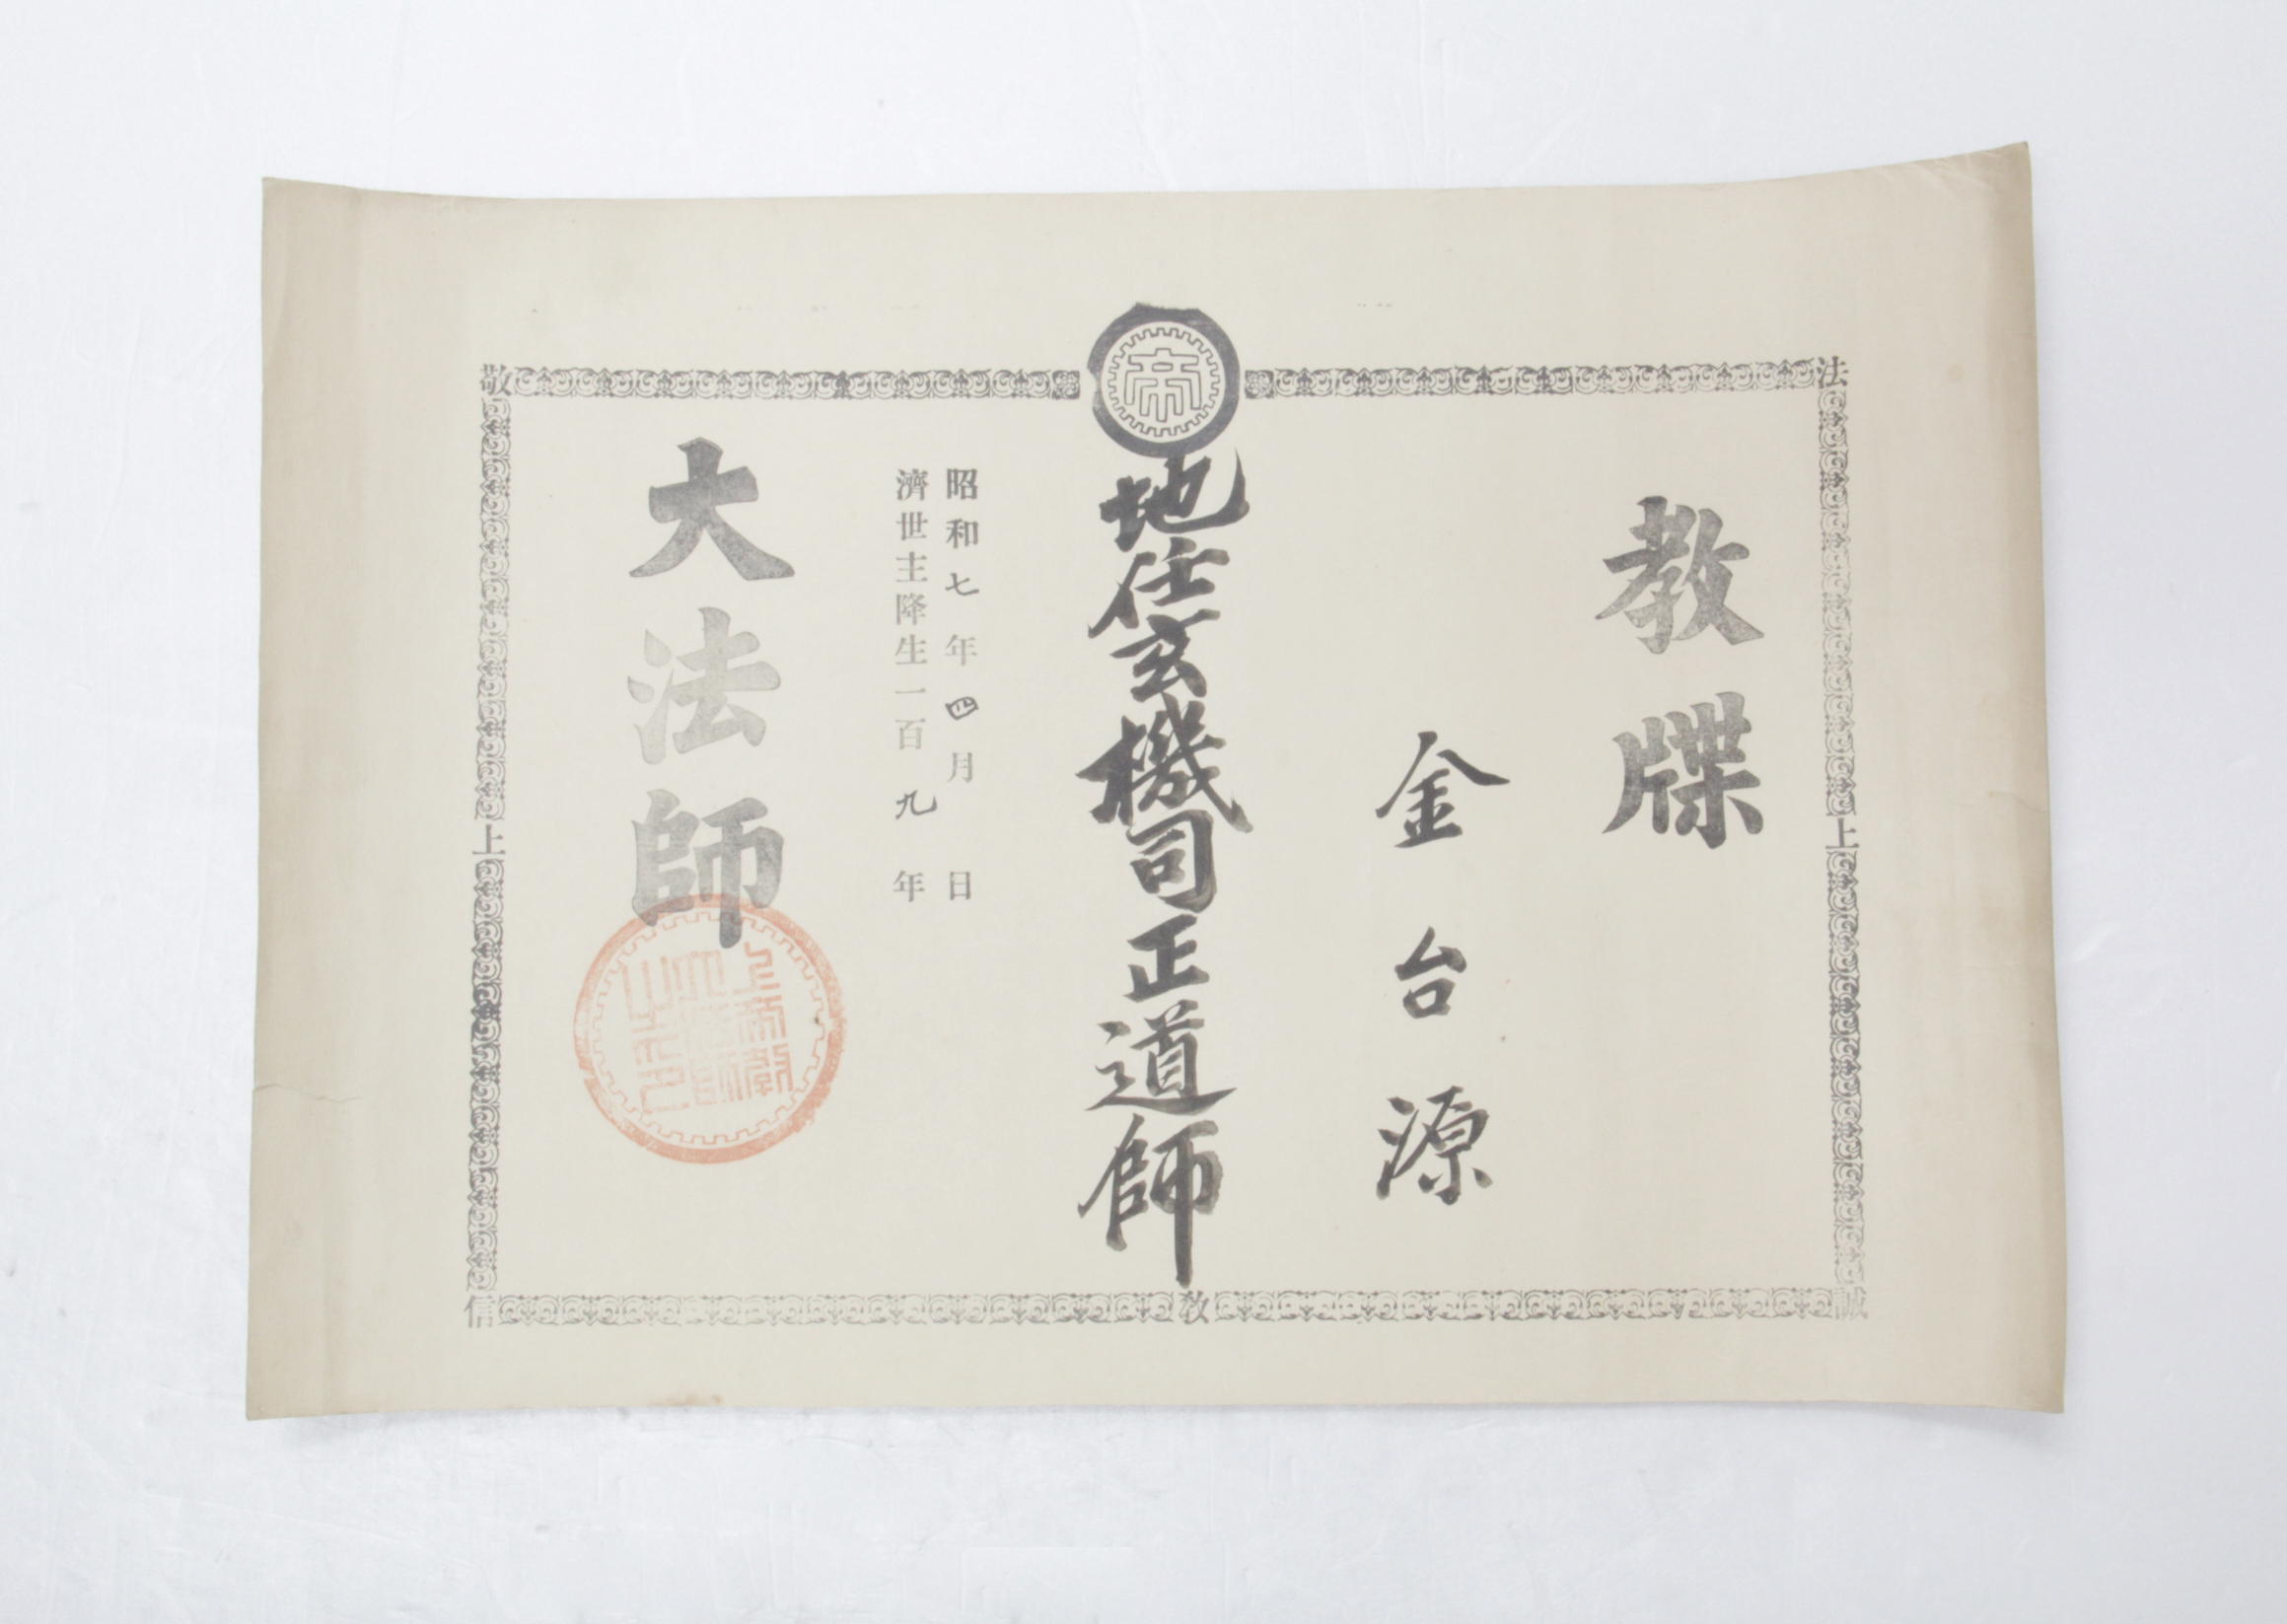 教牒
金台源
地任玄機司正道師
昭和七年四月日
濟世主降生一百九年
大法師
帝
法
上
誠
教
信
上
敬
上帝教
大法師
之印